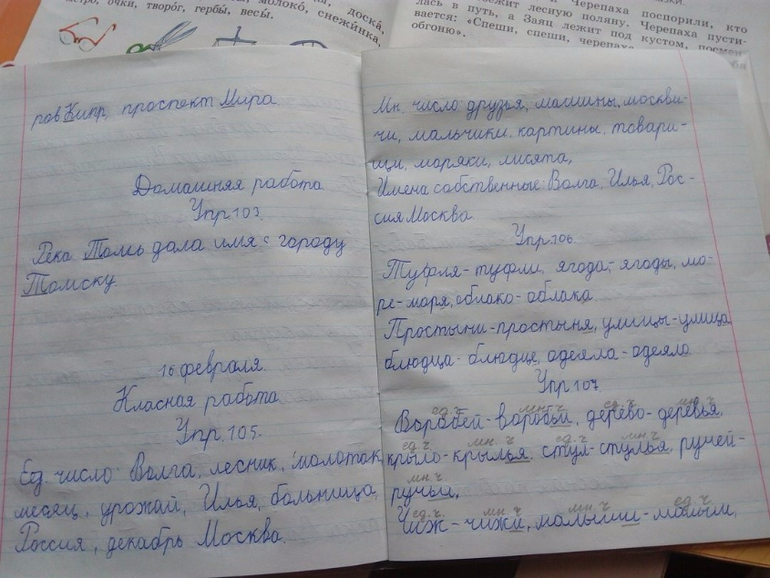 доска́,
метро, очки, творо́г, гербы́, весы́. молоко́, снежи́нка,
Черепаха поспорили, кто
лась в путь, а Заяц лежит под кустом, посме
бежит лесную поляну. Черепаха пусти-
вается: «Спеши, спеши, черепаха
обгоню».
ров Кипр, проспект Мира
Домашняя работа
Упр 103.
Река Томь дала имя с городу
Томску.
16 февраля.
Класная работа
Упр. 105.
Ед. число: Волга, лесник, молоток,
месяц, урожай, Илья, больница,
Россия, декабрь Москва.
Мн. число: друзья, машины, москви-
чи, мальчики, картины, товари-
щи, моряки, лисята,
Имена собственные: Волга, Илья, Рос-
сия Москва
Упр 106.
Туфля-туфли, ягода-ягоды, мо-
ре-моря, облако-облака
Простыни-простыня, улицы-улица
блюдца-блюдце, одеяла-одеяло
Упр 107
ед.ч мн.ч ед.ч мн.ч
Воробей-воробьи, дерево-деревья,
ед.ч мн.ч ед.ч мн.ч
крыло-крылья, стул-стулья, ручей-
мн.ч
ручьи,
ед.ч мн.ч мн.ч ед.ч
Чиж-чижи, малыши-малыш,